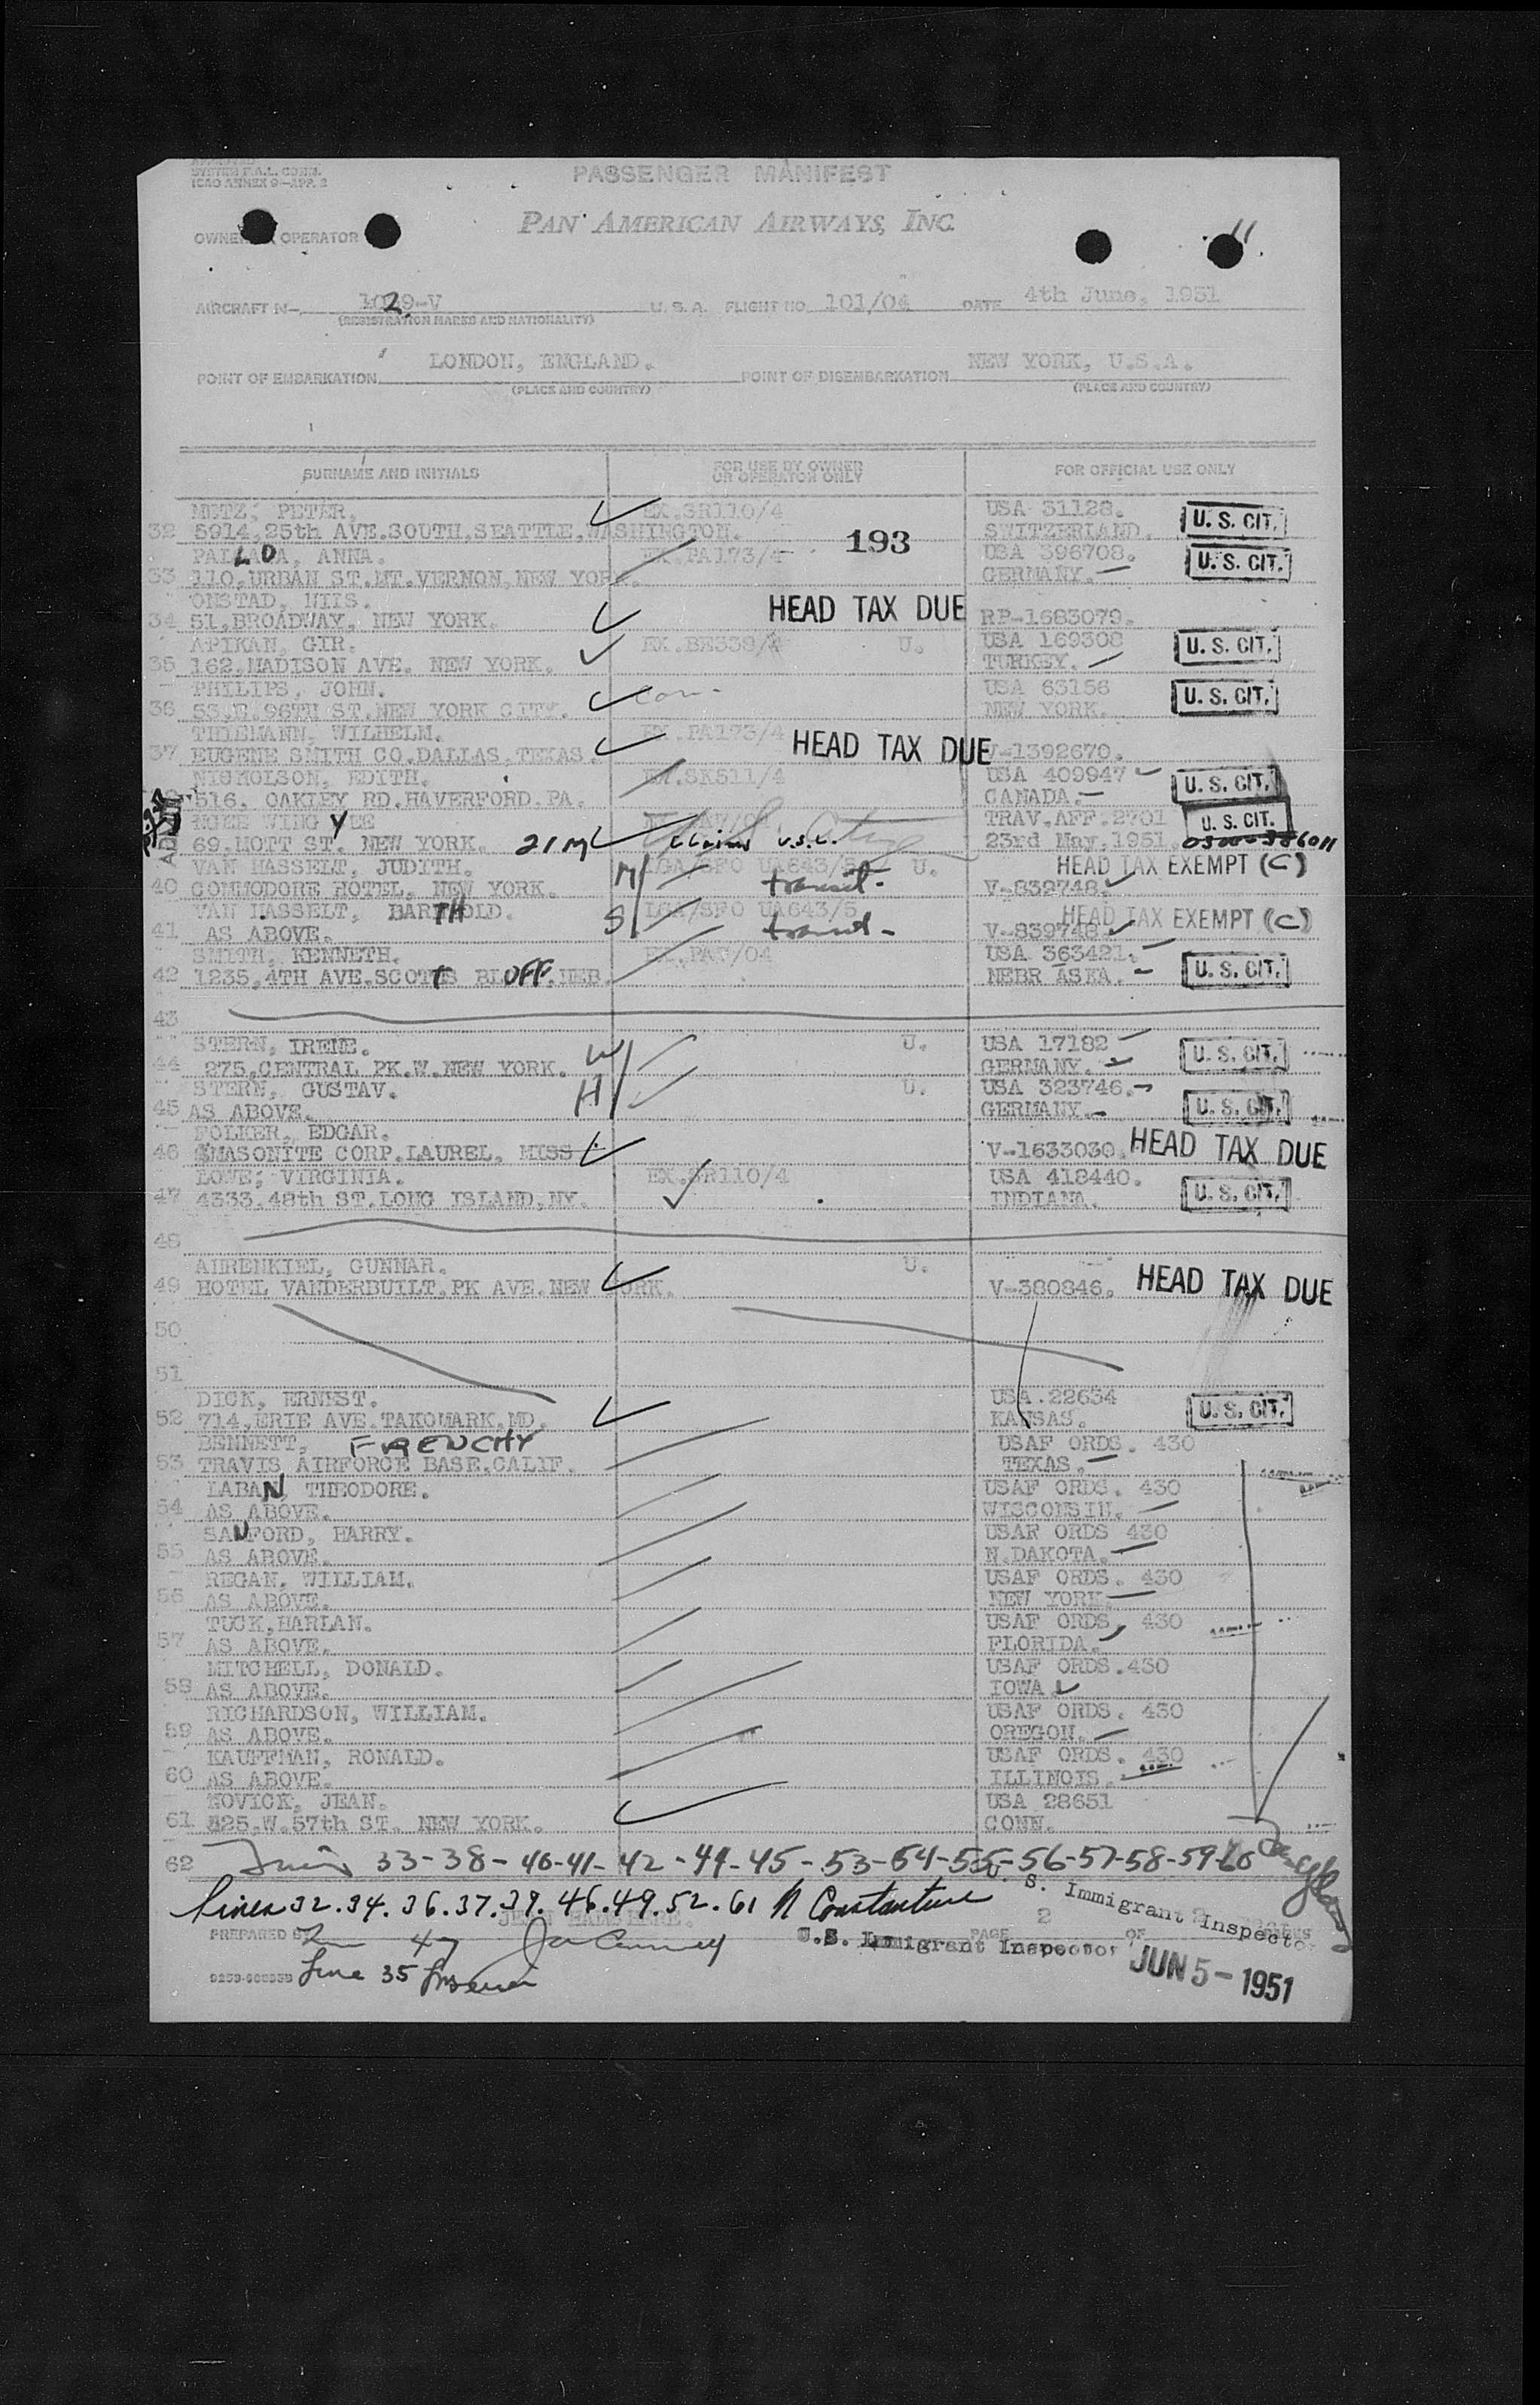 SYSTEM F.A.L. COMM.
ICAO ANNEX 9—APP. 2
PASSENGER MANIFEST
PAN AMERICAN AIRWAYS, INC.
OWNER OPERATOR
11.
AIRCRAFT N— 1029-V U. S. A. FLIGHT NO. 101/04 DATE 4th June, 1951
(REGISTRATION MARKS AND NATIONALITY)
POINT OF EMBARKATION LONDON, ENGLAND. POINT OF DISEMBARKATION NEW YORK, U.S.A.
(PLACE AND COUNTRY) (PLACE AND COUNTRY)
SURNAME AND INITIALS FOR USE BY OWNER OR OPERATOR ONLY FOR OFFICIAL USE ONLY
METZ, PETER. EX.SR110/4 USA 31128.
32 5914,25th AVE.SOUTH,SEATTLE,WASHINGTON. 193 SWITZERLAND. U. S. CIT.
ANNA. EX.PA173/4 USA 396708.
33 110,URBAN ST.MT.VERNON,NEW YORK. GERMANY. U. S. CIT.
ONSTAD, NIIS. HEAD TAX DUE
34 51,BROADWAY, NEW YORK. RP-1683079.
APIKAN, GIR. EX.BE339/4 U. USA 169308
35 162,MADISON AVE. NEW YORK. TURKEY. U. S. CIT.
PHILIPS, JOHN. con- USA 63156
36 53,E.96TH ST.NEW YORK CITY. NEW YORK. U. S. CIT.
THIEMANN, WILHELM. EX.PA173/4 HEAD TAX DUE
37 EUGENE SMITH CO.DALLAS,TEXAS. V-1392670.
NICHOLSON, EDITH. EX.SK611/4 USA 409947
516. OAKLEY RD.HAVERFORD.PA. CANADA. U. S. CIT.
WING TRAV.AFF.2701
69.MOTT ST. NEW YORK. 21 M claims U.S.C. 23rd May,1951. U. S. CIT. 0300-386011
VAN HASSELT, JUDITH. M LGA/SFO UA643/5 U. HEAD TAX EXEMPT (C)
40 COMMODORE HOTEL, NEW YORK. transit- V-839748.
VAN HASSELT, BARTHOLD. S LGA/SFO UA643/5 HEAD TAX EXEMPT (C)
41 AS ABOVE. transit- V-839748.
SMITH, KENNETH. EX.PA07/04 USA 363421.
42 1235,4TH AVE.SCOTTS BLOFF.NEB. NEBRASKA. U. S. CIT.
43
STERN, IRENE. W U. USA 17182
44 275,CENTRAL PK.W.NEW YORK. GERMANY. U. S. CIT.
STERN, GUSTAV. H U. USA 323746.
45 AS ABOVE. GERMANY. U. S. CIT.
FOLKER, EDGAR.
46 MASONITE CORP.LAUREL, MISS V-1633030. HEAD TAX DUE
LOWE, VIRGINIA. EX.SR110/4 USA 418440.
47 4333,48th ST.LONG ISLAND,NY. INDIANA. U. S. CIT.
48
AHRENKIEL, GUNNAR. U.
49 HOTEL VANDERBUILT.PK AVE.NEW YORK. V-380846. HEAD TAX DUE
50
51
DICK, ERNEST. USA.22634
52 714,ERIE AVE.TAKOMARK.MD. KANSAS. U. S. CIT.
BENNETT, FRENCHY USAF ORDS. 430
53 TRAVIS AIRFORCE BASE.CALIF. TEXAS.
LABAN, THEODORE. USAF ORDS. 430
54 AS ABOVE. WISCONSIN.
SANFORD, HARRY. USAF ORDS 430
55 AS ABOVE. N.DAKOTA.
REGAN, WILLIAM. USAF ORDS. 430
56 AS ABOVE. NEW YORK.
TUCK,HARLAN. USAF ORDS. 430
57 AS ABOVE. FLORIDA.
MITCHELL, DONALD. USAF ORDS.430
58 AS ABOVE. IOWA
RICHARDSON, WILLIAM. USAF ORDS. 430
59 AS ABOVE. OREGON.
KAUFFMAN, RONALD. USAF ORDS. 430
60 AS ABOVE. ILLINOIS.
NOVICK, JEAN. USA 28651
61 325,W.57th ST. NEW YORK. CONN.
62 Lines 33-38-40-41-42-44-45-53-54-55-56-57-58-59-60
U. S. Immigrant Inspector
Lines 32.34.36.37.39.46.49.52.61 N Constantine
PREPARED BY PAGE 2 OF
U.S. Immigrant Inspector
Line 47
JUN 5 - 1951
Line 35